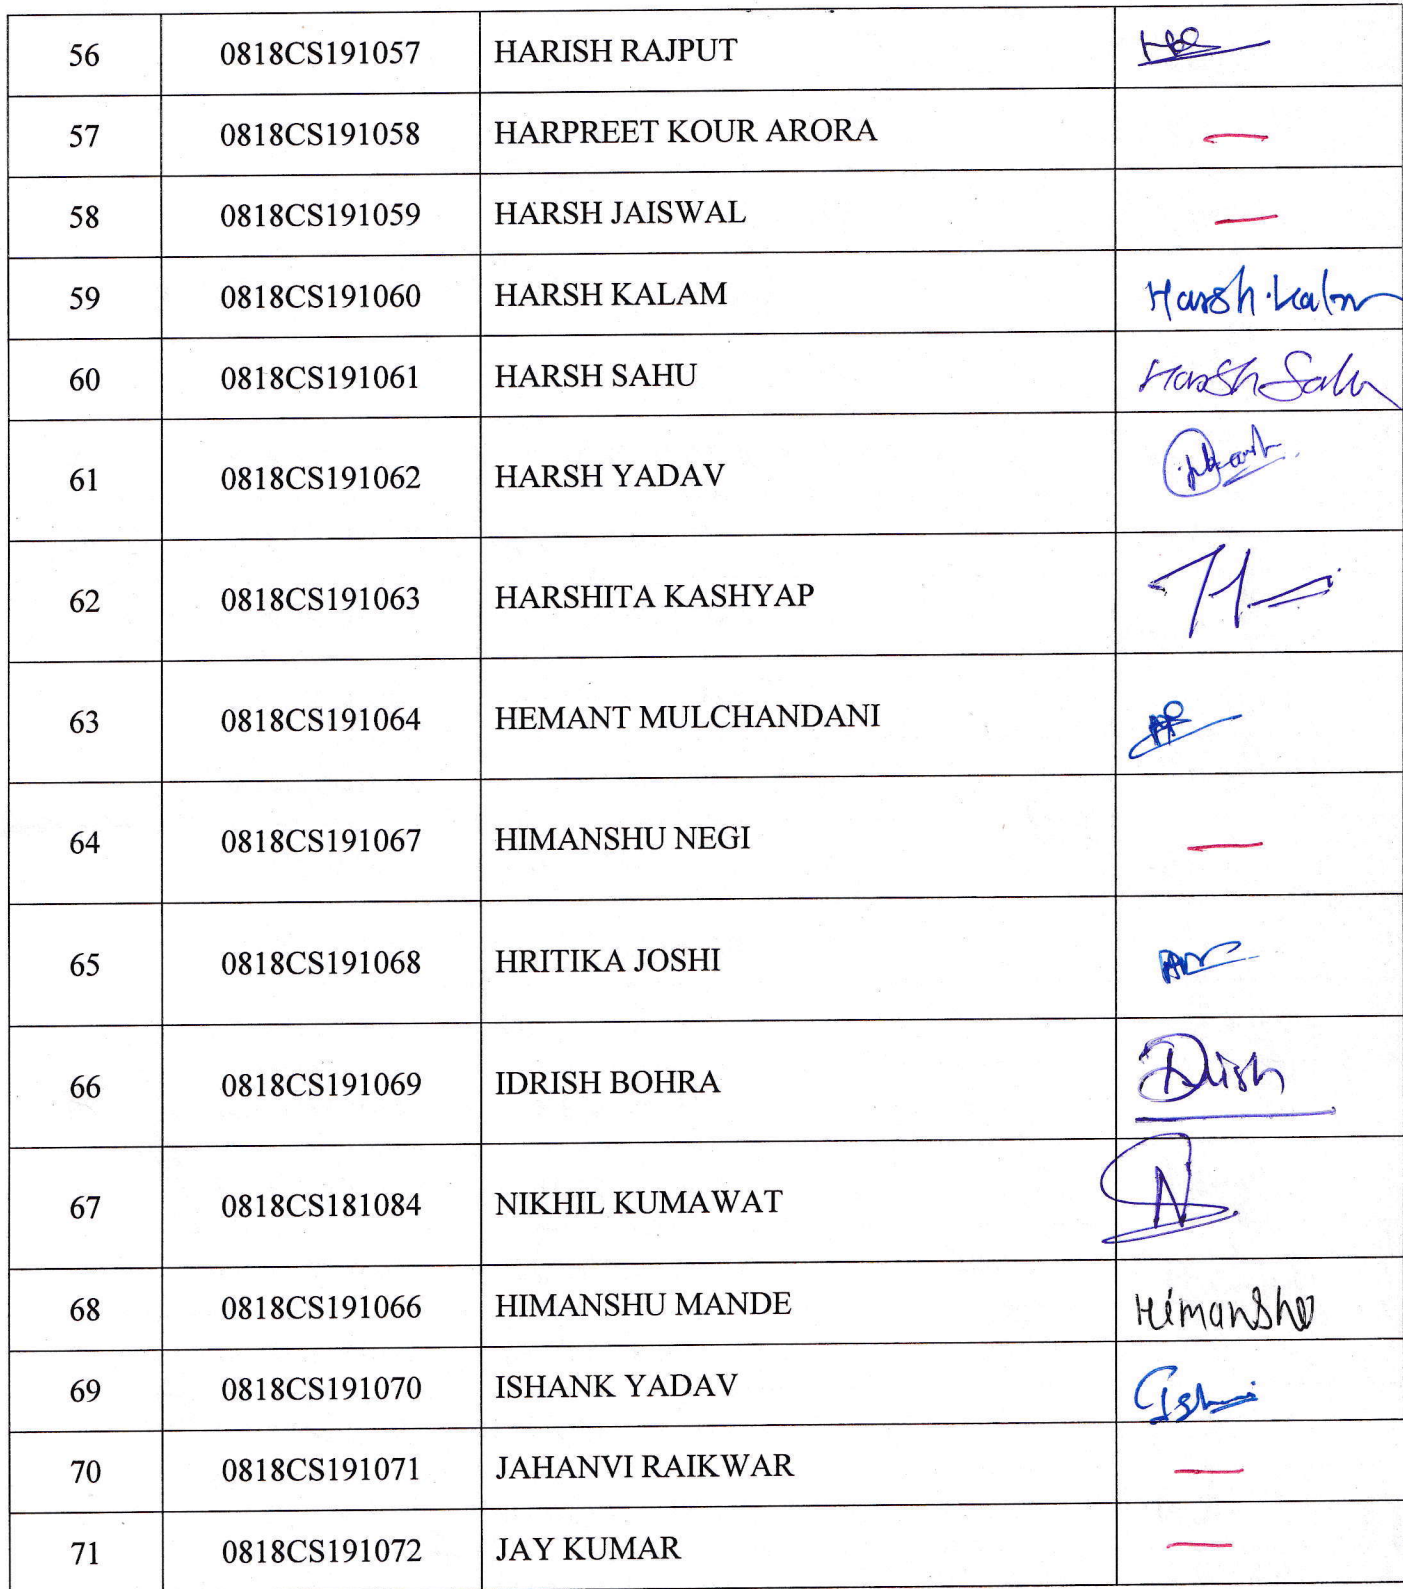 56 0818CS191057 HARISH RAJPUT
57 0818CS191058 HARPREET KOUR ARORA —
58 0818CS191059 HARSH JAISWAL —
59 0818CS191060 HARSH KALAM Harsh.Kalm
60 0818CS191061 HARSH SAHU Harsh Sahu
61 0818CS191062 HARSH YADAV
62 0818CS191063 HARSHITA KASHYAP
63 0818CS191064 HEMANT MULCHANDANI
64 0818CS191067 HIMANSHU NEGI —
65 0818CS191068 HRITIKA JOSHI
66 0818CS191069 IDRISH BOHRA
67 0818CS181084 NIKHIL KUMAWAT N
68 0818CS191066 HIMANSHU MANDE Himanshu
69 0818CS191070 ISHANK YADAV
70 0818CS191071 JAHANVI RAIKWAR —
71 0818CS191072 JAY KUMAR —